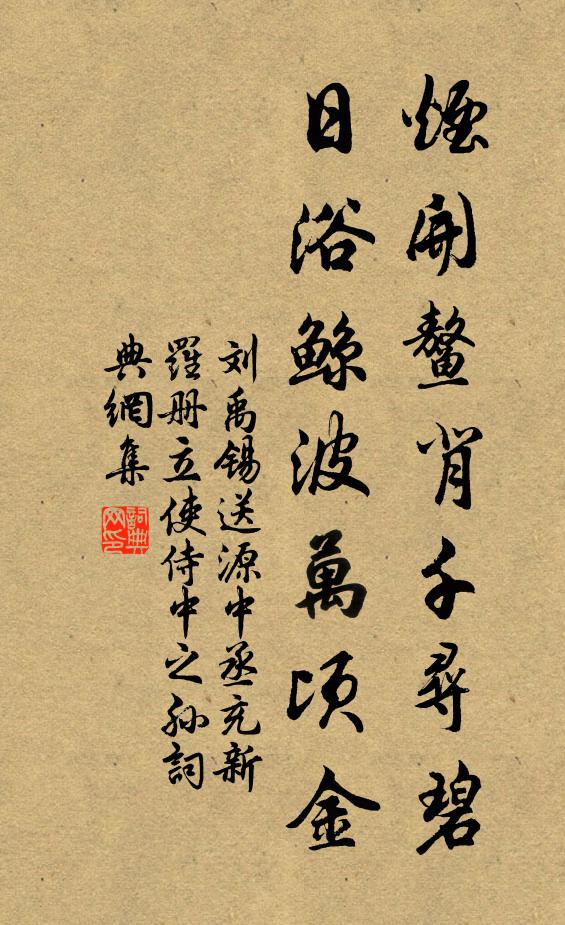 煙開鰲背千尋碧
日浴鯨波萬頃金
刘禹锡送源中丞充新
羅册立使侍中之孙詞
典網集
詞典網印